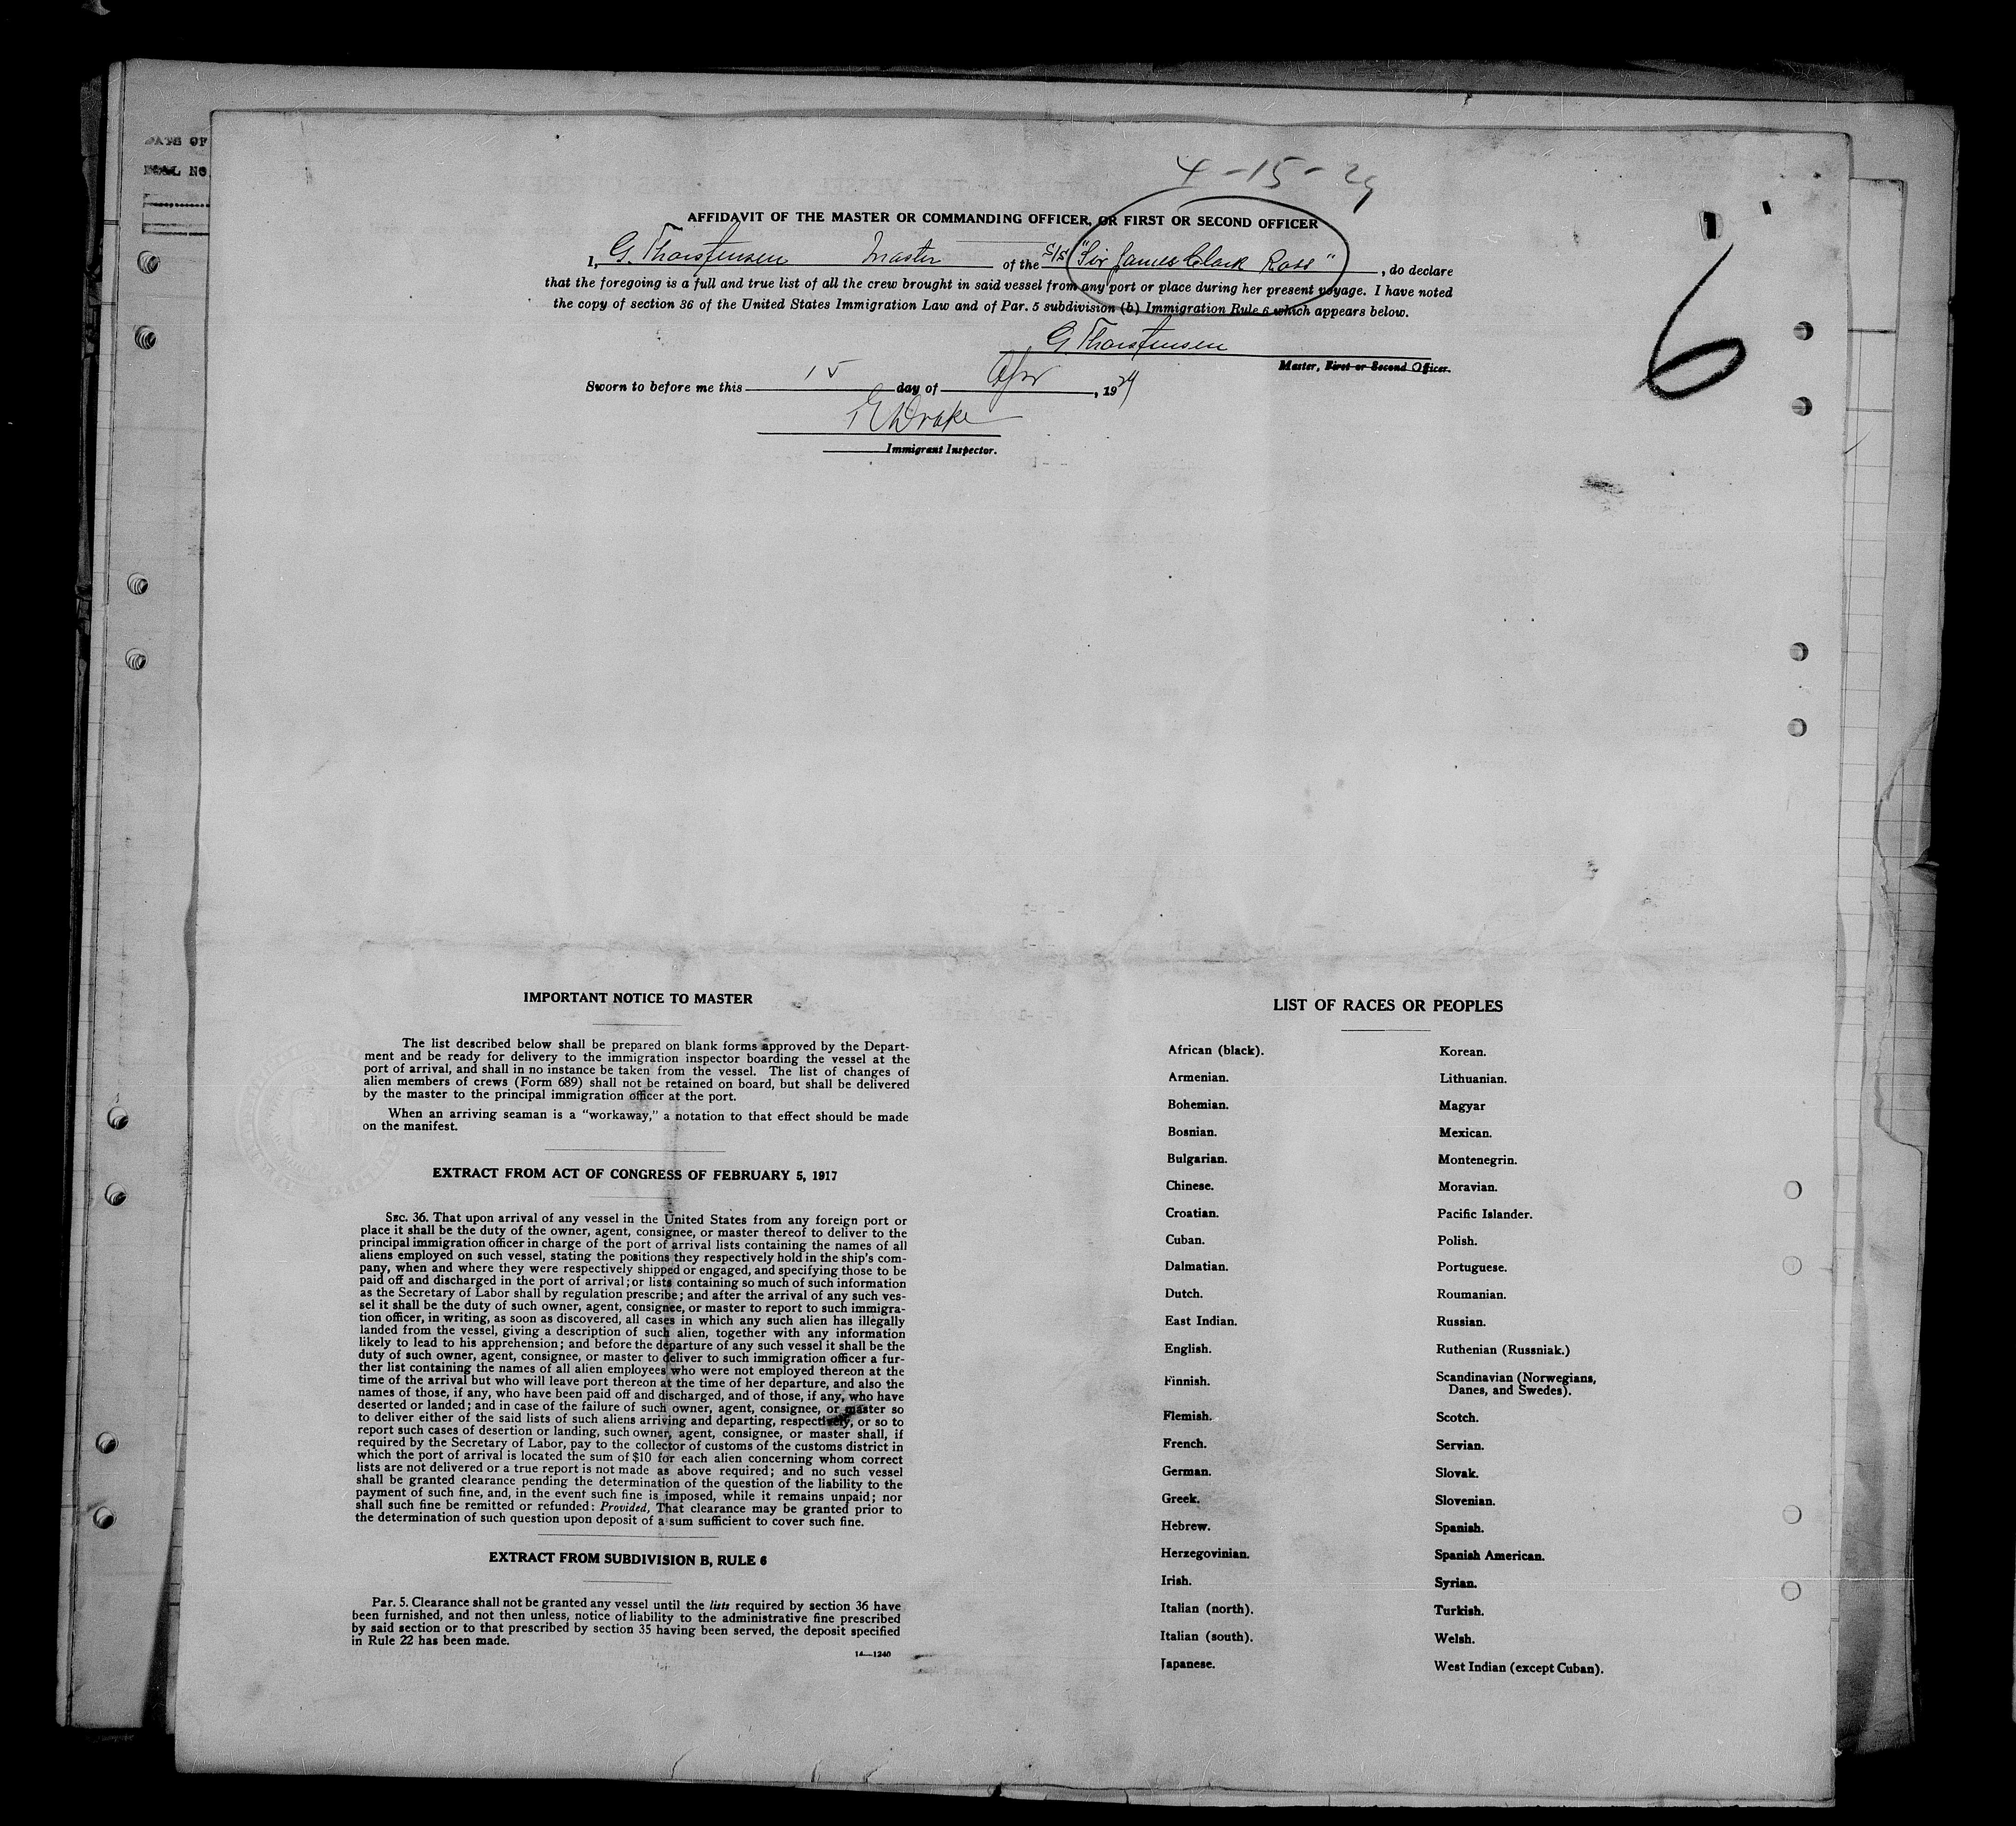 DATE OF
4-15-29
AFFIDAVIT OF THE MASTER OR COMMANDING OFFICER, OR FIRST OR SECOND OFFICER
I, G. Thorstensen Master of the S/S "Sir James Clark Ross", do declare
that the foregoing is a full and true list of all the crew brought in said vessel from any port or place during her present voyage. I have noted
the copy of section 36 of the United States Immigration Law and of Par. 5 subdivision (b) Immigration Rule 6 which appears below.
6
G. Thorstensen
Master, First or Second Officer.
Sworn to before me this 15 day of Apr, 1929
Drake
Immigrant Inspector.
IMPORTANT NOTICE TO MASTER
The list described below shall be prepared on blank forms approved by the Depart-
ment and be ready for delivery to the immigration inspector boarding the vessel at the
port of arrival, and shall in no instance be taken from the vessel. The list of changes of
alien members of crews (Form 689) shall not be retained on board, but shall be delivered
by the master to the principal immigration officer at the port.
When an arriving seaman is a "workaway," a notation to that effect should be made
on the manifest.
EXTRACT FROM ACT OF CONGRESS OF FEBRUARY 5, 1917
SEC. 36. That upon arrival of any vessel in the United States from any foreign port or
place it shall be the duty of the owner, agent, consignee, or master thereof to deliver to the
principal immigration officer in charge of the port of arrival lists containing the names of all
aliens employed on such vessel, stating the positions they respectively hold in the ship's com-
pany, when and where they were respectively shipped or engaged, and specifying those to be
paid off and discharged in the port of arrival; or lists containing so much of such information
as the Secretary of Labor shall by regulation prescribe; and after the arrival of any such ves-
sel it shall be the duty of such owner, agent, consignee, or master to report to such immigra-
tion officer, in writing, as soon as discovered, all cases in which any such alien has illegally
landed from the vessel, giving a description of such alien, together with any information
likely to lead to his apprehension; and before the departure of any such vessel it shall be the
duty of such owner, agent, consignee, or master to deliver to such immigration officer a fur-
ther list containing the names of all alien employees who were not employed thereon at the
time of the arrival but who will leave port thereon at the time of her departure, and also the
names of those, if any, who have been paid off and discharged, and of those, if any, who have
deserted or landed; and in case of the failure of such owner, agent, consignee, or master so
to deliver either of the said lists of such aliens arriving and departing, respectively, or so to
report such cases of desertion or landing, such owner, agent, consignee, or master shall, if
required by the Secretary of Labor, pay to the collector of customs of the customs district in
which the port of arrival is located the sum of $10 for each alien concerning whom correct
lists are not delivered or a true report is not made as above required; and no such vessel
shall be granted clearance pending the determination of the question of the liability to the
payment of such fine, and, in the event such fine is imposed, while it remains unpaid; nor
shall such fine be remitted or refunded: Provided, That clearance may be granted prior to
the determination of such question upon deposit of a sum sufficient to cover such fine.
EXTRACT FROM SUBDIVISION B, RULE 6
Par. 5. Clearance shall not be granted any vessel until the lists required by section 36 have
been furnished, and not then unless, notice of liability to the administrative fine prescribed
by said section or to that prescribed by section 35 having been served, the deposit specified
in Rule 22 has been made.
14—1240
LIST OF RACES OR PEOPLES
African (black).
Armenian.
Bohemian.
Bosnian.
Bulgarian.
Chinese.
Croatian.
Cuban.
Dalmatian.
Dutch.
East Indian.
English.
Finnish.
Flemish.
French.
German.
Greek.
Hebrew.
Herzegovinian.
Irish.
Italian (north).
Italian (south).
Japanese.
Korean.
Lithuanian.
Magyar
Mexican.
Montenegrin.
Moravian.
Pacific Islander.
Polish.
Portuguese.
Roumanian.
Russian.
Ruthenian (Russniak.)
Scandinavian (Norwegians,
Danes, and Swedes).
Scotch.
Servian.
Slovak.
Slovenian.
Spanish.
Spanish American.
Syrian.
Turkish.
Welsh.
West Indian (except Cuban).